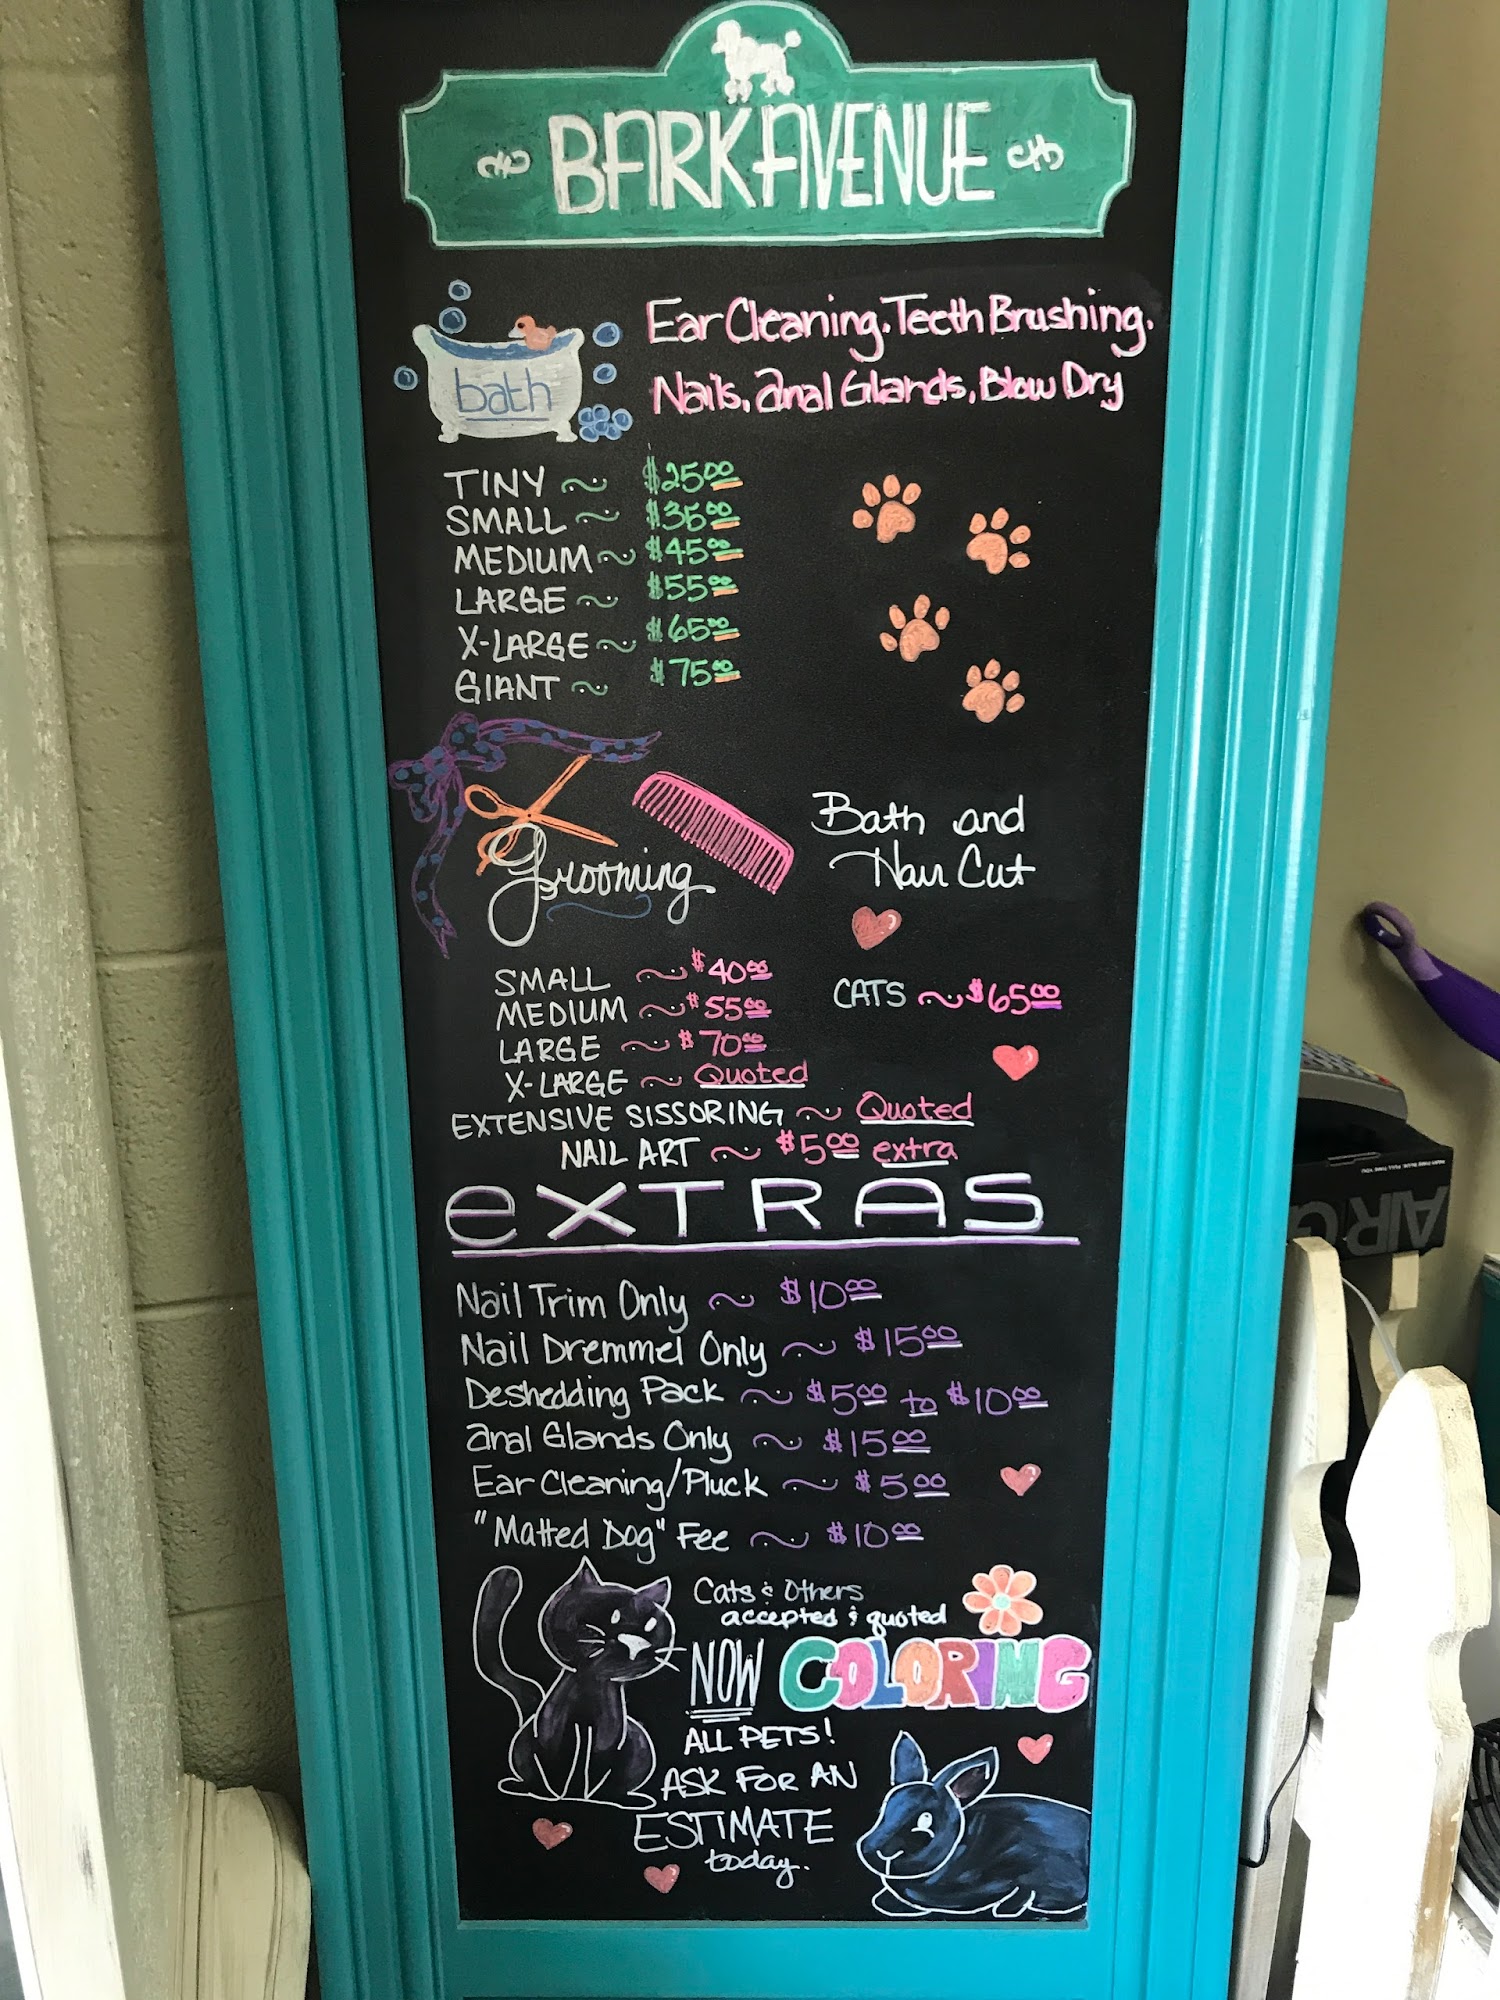 BARK AVENUE
bath
Ear Cleaning. Teeth Brushing.
Nails, anal Glands, Blow Dry
TINY ~ $25.00
SMALL ~ $35.00
MEDIUM ~ $45.00
LARGE ~ $55.00
X-LARGE ~ $65.00
GIANT ~ $75.00
Grooming
Bath and
Hair Cut
SMALL ~ $40.00
MEDIUM ~ $55.00
LARGE ~ $70.00
X-LARGE ~ Quoted
CATS ~ $65.00
EXTENSIVE SISSORING ~ Quoted
NAIL ART ~ $5.00 extra
eXTRAS
Nail Trim Only ~ $10.00
Nail Dremmel Only ~ $15.00
Deshedding Pack ~ $5.00 to $10.00
anal Glands Only ~ $15.00
Ear Cleaning/Pluck ~ $5.00
"Matted Dog" Fee ~ $10.00
Cats & Others
accepted & quoted
NOW COLORING
ALL PETS!
ASK FOR AN
ESTIMATE
today.
AIR